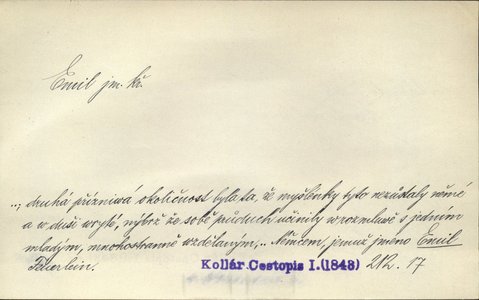 Emil jm. kř.
„ druhá příznivá okoličnost byla ta, že myšlenky tyto nezůstaly němé
a w duši wryté, nýbrž že sobě průduch učinily w rozmluwě s jedním
mladým, mnohostranně vzdělaným,.. Němcem, jemuž jméno Emil
Feuerlein.
Kollár Cestopis I.(1843) 212. 17